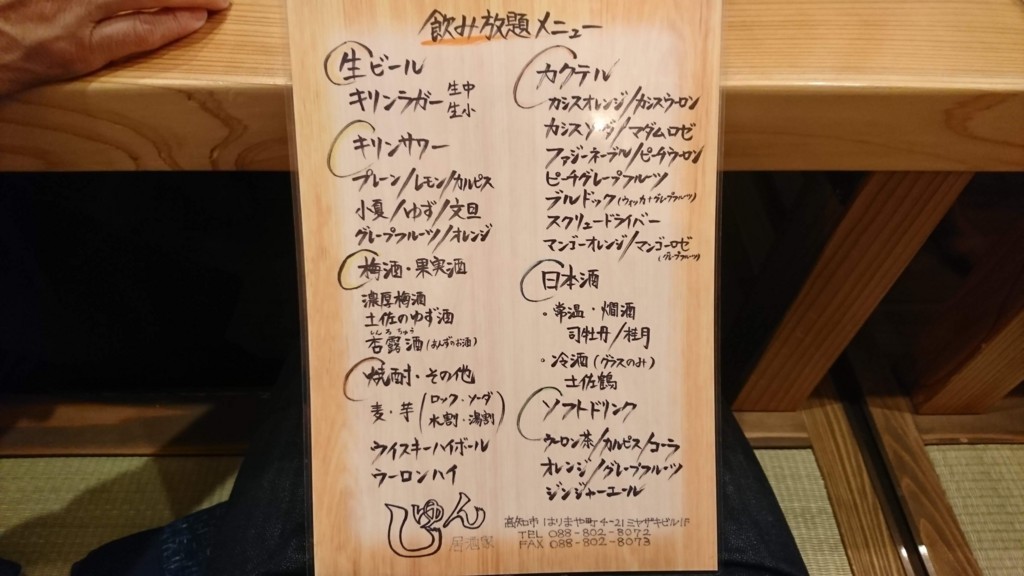 飲み放題メニュー
生ビール
キリンラガー 生中
生小
キリンサワー
プレーン/レモン/カルピス
小夏/ゆず/文旦
グレープフルーツ/オレンジ
梅酒・果実酒
濃厚梅酒
土佐のゆず酒
しんるちゅう
杏露酒(あんずのお酒)
焼酎・その他
麦・芋(ロック・ソーダ
水割・湯割)
ウイスキーハイボール
ウーロンハイ
カクテル
カシスオレンジ/カシスウーロン
カシスソーダ/マダムロゼ
ファジーネーブル/ピーチウーロン
ピーチグレープフルーツ
ブルドック(ウォッカ+グレープフルーツ)
スクリュードライバー
マンゴーオレンジ/マンゴーロゼ
(グレープフルーツ)
日本酒
・常温・燗酒
司牡丹/桂月
・冷酒(グラスのみ)
土佐鶴
ソフトドリンク
ウーロン茶/カルピス/コーラ
オレンジ/グレープフルーツ
ジンジャーエール
じゅん
居酒家
高知市はりまや町4-21ミヤザキビル1F
TEL 088-802-8072
FAX 088-802-8073